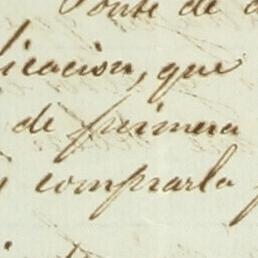 Ponte de
licacion, que
de primera
comprarla